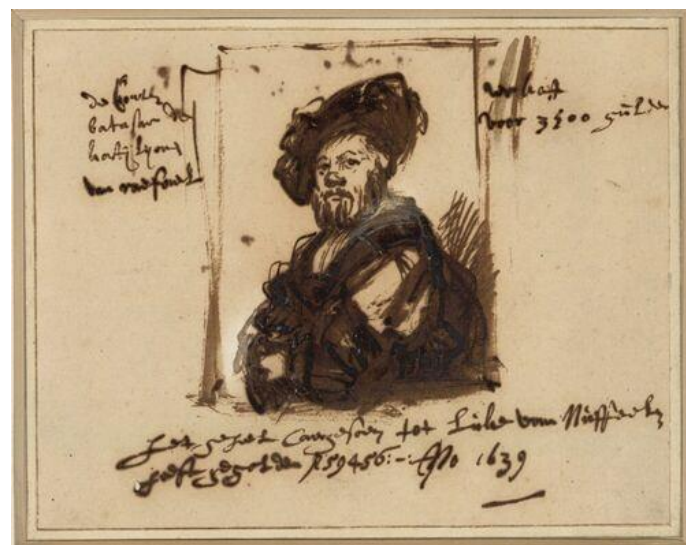 de Conte
batasar de
kastylyone
van raefael
verkoft
voor 3500 gulden
het geheel caergesoen tot Luke van Nuffeelen
heeft gegolden f 59456:-: Ano 1639